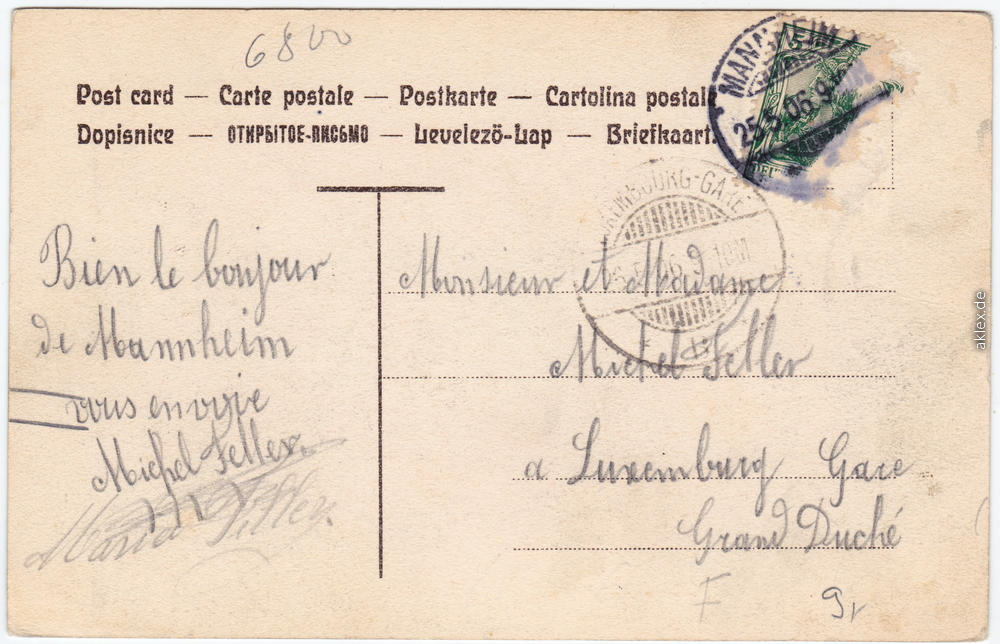 6800
Post card — Carte postale — Postkarte — Cartolina postale
Dopisnice — ОТКРЫТОЕ-ПИСЬМО — Levelező-Lap — Briefkaart.
MANNHEIM
25.5.06.9
5
DEU
LUXEMBOURG-GARE
.06.9-10M
Bien le bonjour
de Mannheim
vous envoie
Michel Feller.
Maria Feller.
Monsieur et Madame
Michel Feller
a Luxemburg Gare
Grand Duché
F
aklex.de